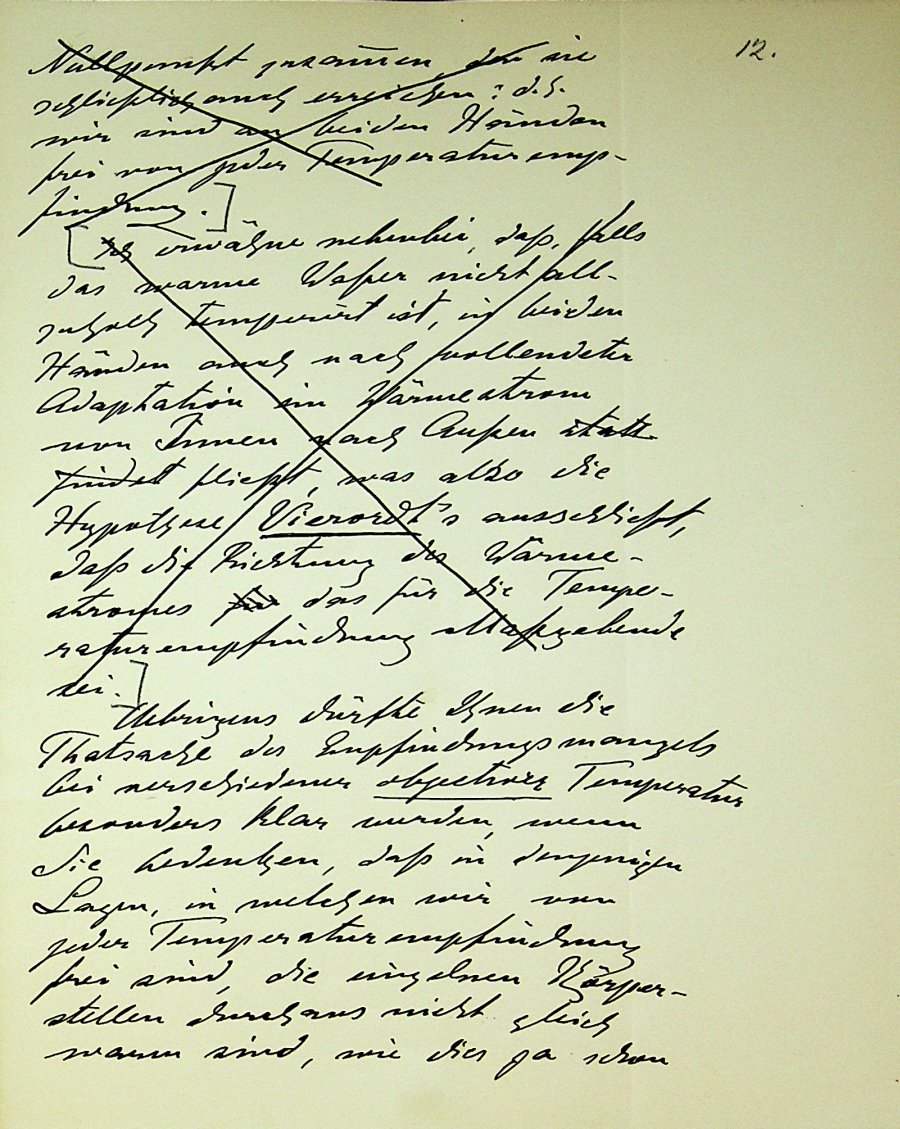 12.
Nullpunkt zusam̄en, den sie
schließlich auch erreichen: d.h.
wir sind an beiden Händen
frei von jeder Temperaturemp-
findung.]
[Ich erwähne nebenbei, daß, falls
das warme Waßer nicht all-
zuhoch temperirt ist, in beiden
Händen auch nach vollendeter
Adaptation ein Wärmestrom
von Innen nach Außen statt
findet fließt, was also die
Hypothese Vierordt's ausschließt,
daß die Richtung des Wärme-
stromes für das für die Tempe-
raturempfindung Maßgebende
sei.]
Uebrigens dürfte Ihnen die
Thatsache des Empfindungsmangels
bei verschiedener objectiver Temperatur
besonders klar werden, wenn
Sie bedenken, daß in denjenigen
Lagen, in welchen wir von
jeder Temperaturempfindung
frei sind, die einzelnen Körper-
stellen durchaus nicht gleich
warm sind, wie dies ja schon